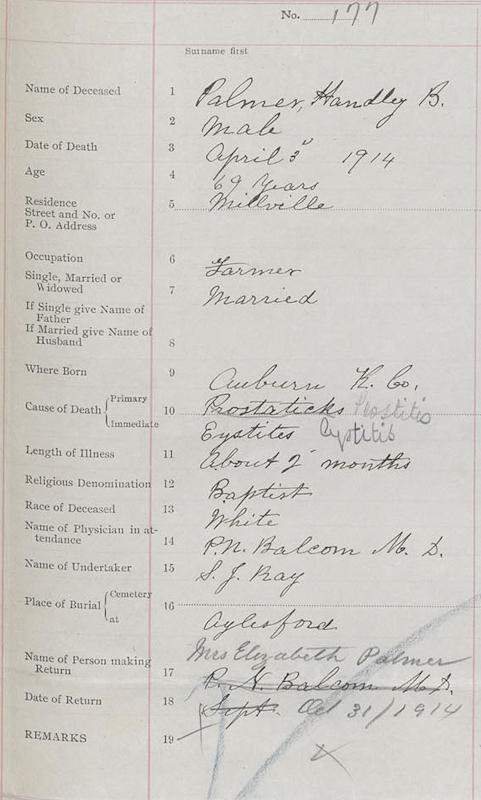 No. 177
Surname first
Name of Deceased 1 Palmer, Handley B.
Sex 2 Male
Date of Death 3 April 3d 1914
Age 4 69 Years
Residence
Street and No. or 5 Millville
P. O. Address
Occupation 6 Farmer
Single, Married or
Widowed 7 Married
If Single give Name of
Father
If Married give Name of
Husband 8
Where Born 9 Auburn K. Co.
Cause of Death { Primary 10 Prostaticks Prostitis
Immediate Eystites Cystitis
Length of Illness 11 About 2 months
Religious Denomination 12 Baptist
Race of Deceased 13 White
Name of Physician in at-
tendance 14 P. N. Balcom M. D.
Name of Undertaker 15 S. J. Ray
Place of Burial { Cemetery 16
at Aylesford
Mrs Elizabeth Palmer
Name of Person making
Return 17 P. N. Balcom M. D.
Date of Return 18 Sept. Oct 31/1914
REMARKS 19